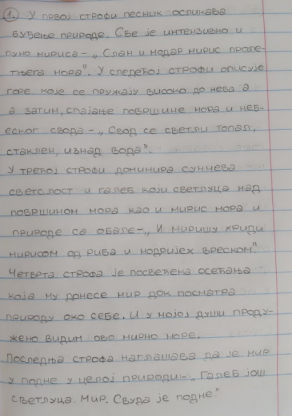 1. У првој строфи песник осликава
буђење природе. Све је интензивно и
пуно мириса - „Слан и модар мирис проле-
тњега мора". У следећој строфи описује
горе које се пружају високо до неба а
а затим, спајање површине мора и неб-
еског свода - „Свод се светли топал,
стаклен, изнад вода".
У трећој строфи доминира сунчева
светлост и галеб који светлуца над
површином мора као и мирис мора и
природе са обале - „И миришу хриди
мирисом од риба и модријех вреском"
Четврта строфа је посвећена осећања
која му донесе мир док посматра
природу око себе. И у мојој души проду-
жено видим ово мирно море.
Последња строфа наглашава да је мир
у подне у целој природи - „Галеб још
светлуца. Мир. Свуда је подне"